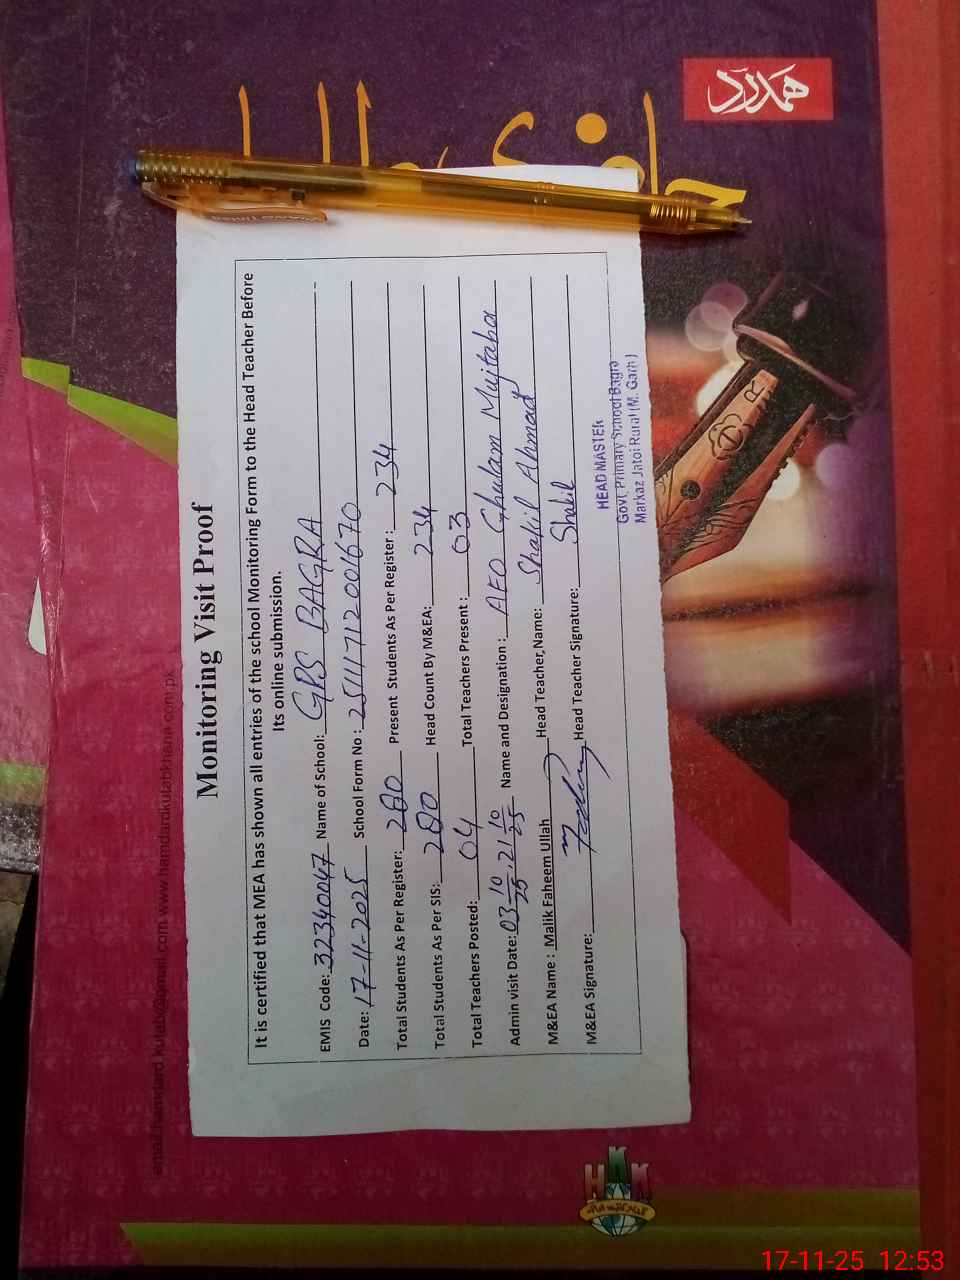 ہمدرد
حاضری طلبا
Monitoring Visit Proof
It is certified that MEA has shown all entries of the school Monitoring Form to the Head Teacher Before
Its online submission.
EMIS Code: 32340047 Name of School: GPS BAGRA
Date: 17-11-2025 School Form No : 25111712001670
Total Students As Per Register: 280 Present Students As Per Register : 234
Total Students As Per SIS: 280 Head Count By M&EA: 234
Total Teachers Posted: 04 Total Teachers Present : 03
Admin visit Date: 03 10/25 . 21 10/25 Name and Designation : AEO Ghulam Mujtaba
M&EA Name : Malik Faheem Ullah Head Teacher, Name: Shakil Ahmad
M&EA Signature: Head Teacher Signature: Shakil
HEAD MASTER
Govt. Primary School Bagra
Markaz Jatoi Rural (M. Garh)
www.hamdardkutabkhana.com.pk
HKK
17-11-25 12:53